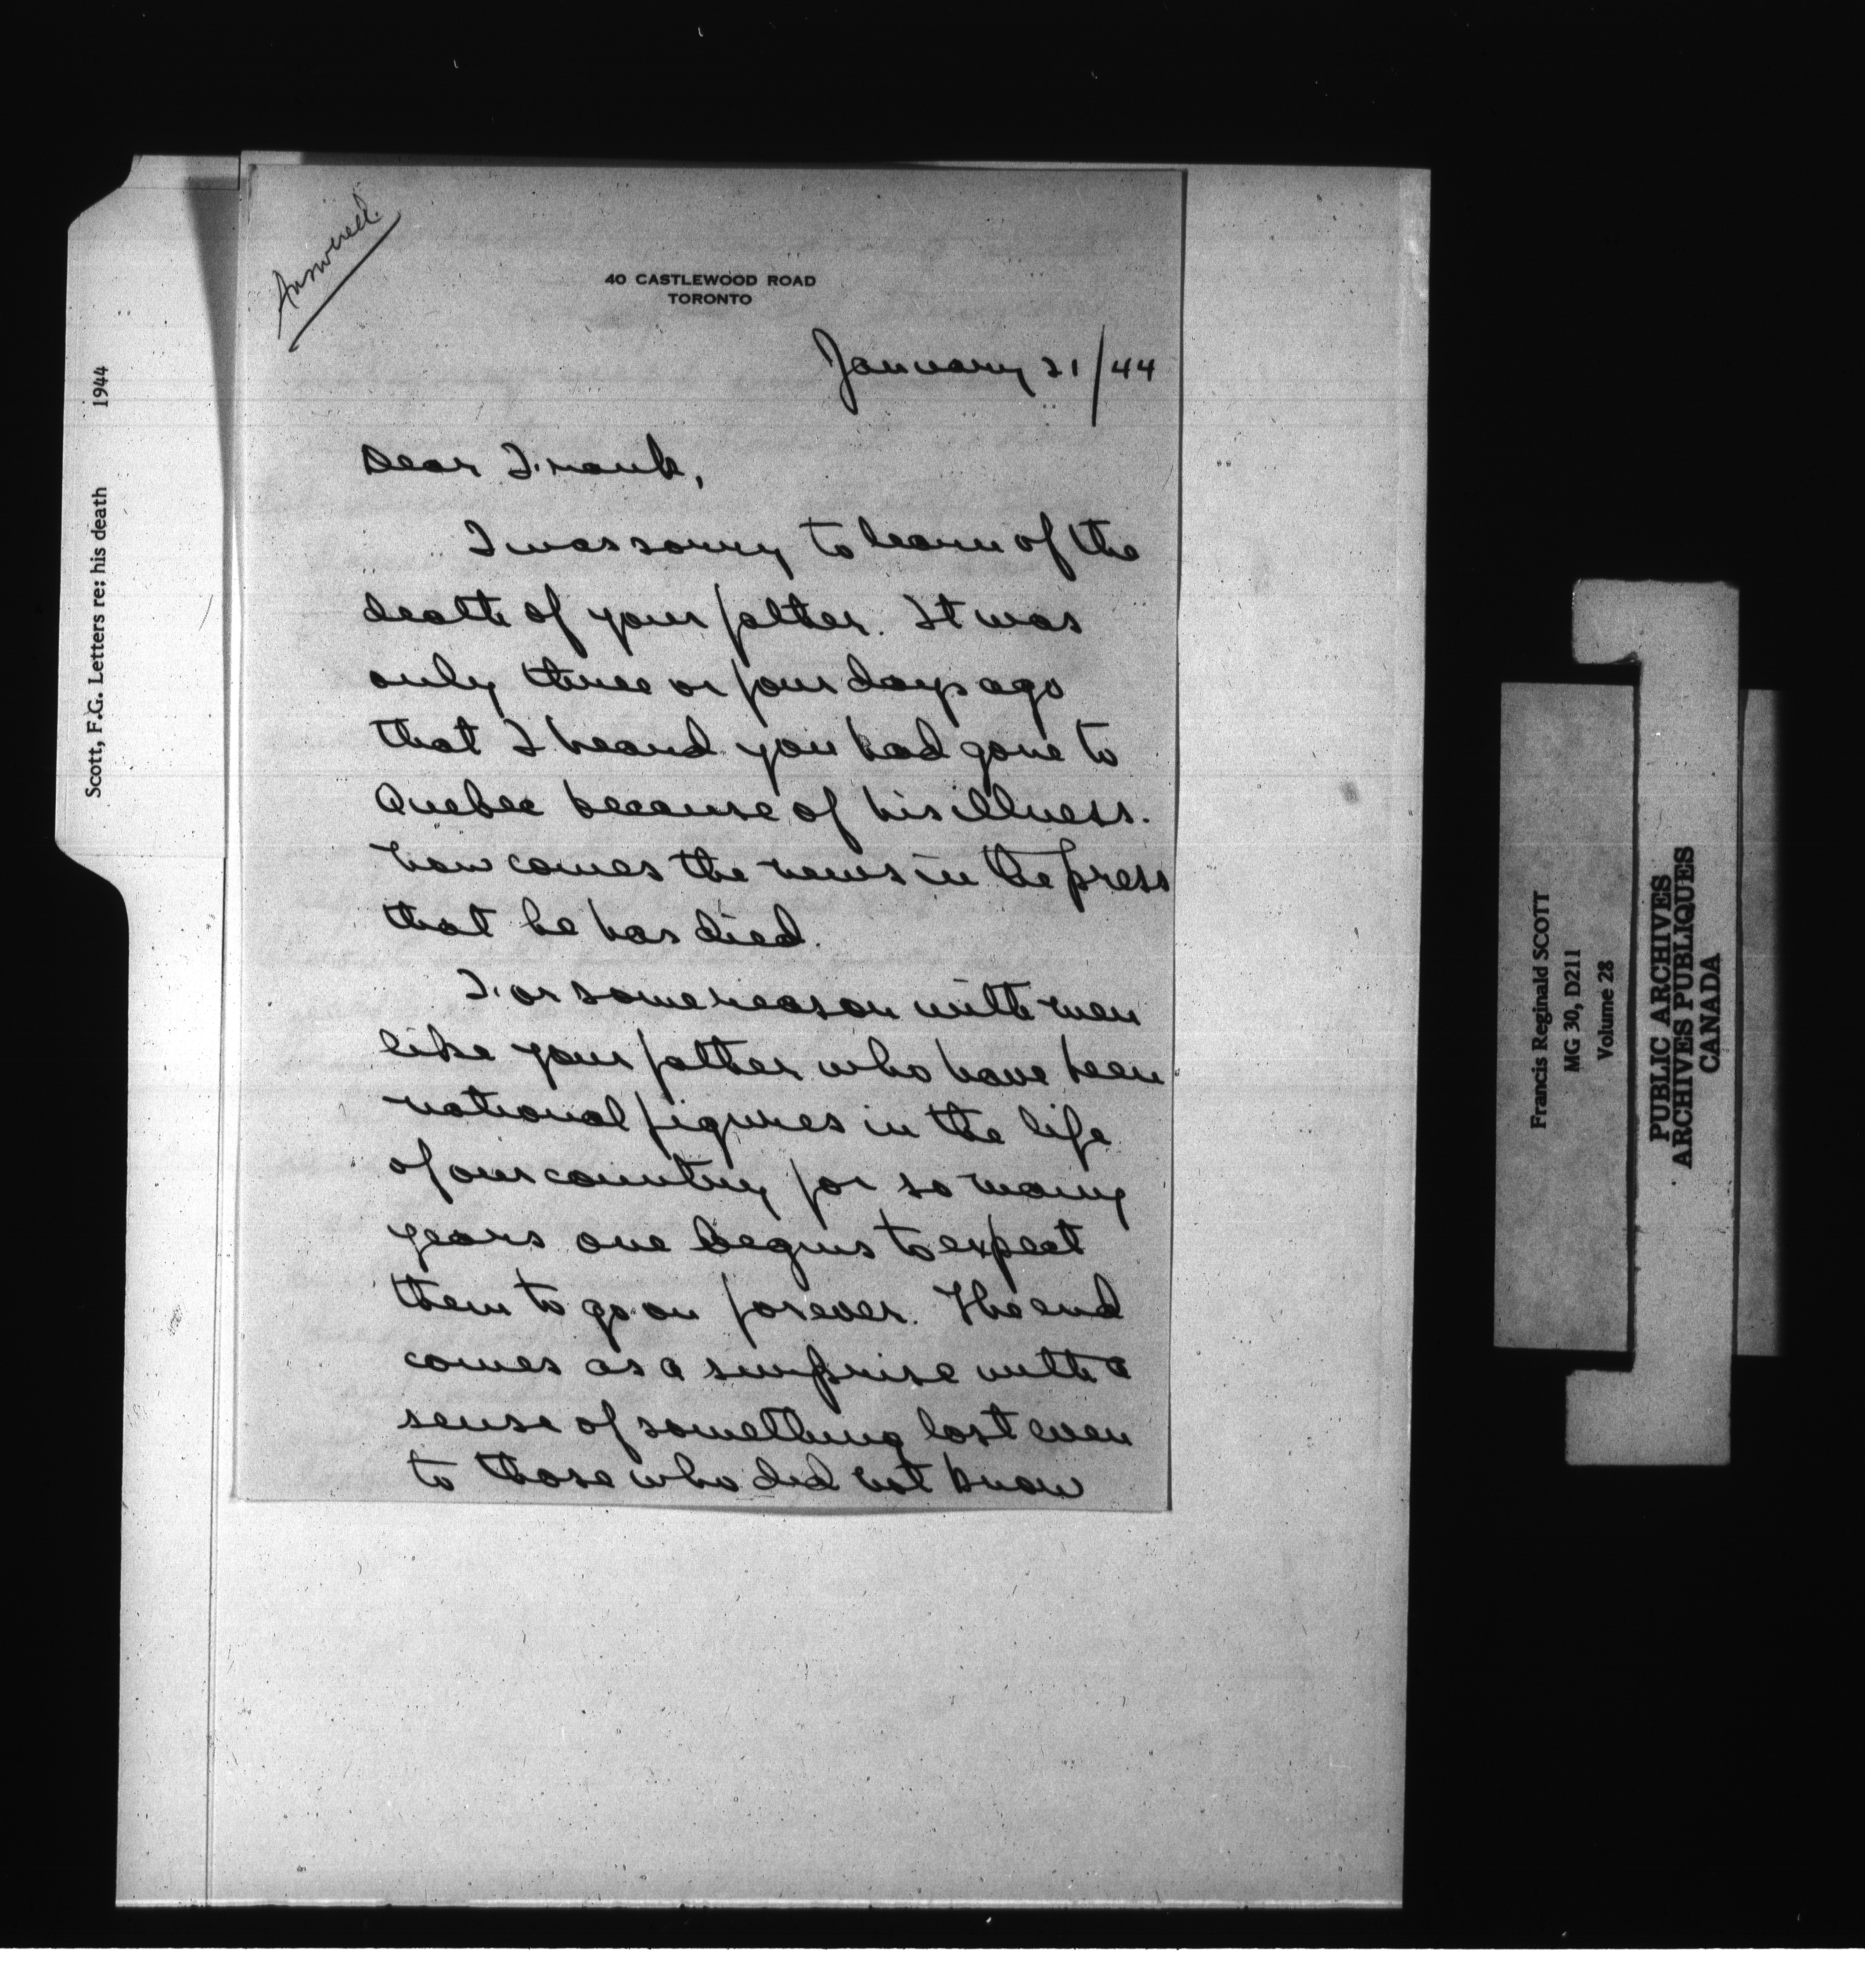 Answered.
40 CASTLEWOOD ROAD
TORONTO
January 21/44
Dear Frank,
I was sorry to learn of the
death of your father. It was
only three or four days ago
that I heard you had gone to
Quebec because of his illness.
Now comes the news in the press
that he has died.
For some reason with men
like your father who have been
national figures in the life
of our country for so many
years one begins to expect
them to go on forever. The end
comes as a surprise with a
sense of something lost even
to those who did not know
Scott, F.G. Letters re: his death 1944
Francis Reginald SCOTT
MG 30, D211
Volume 28
PUBLIC ARCHIVES
ARCHIVES PUBLIQUES
CANADA